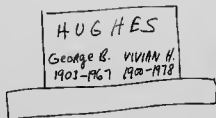 HUGHES
George B. VIVIAN H.
1903-1967 1900-1978